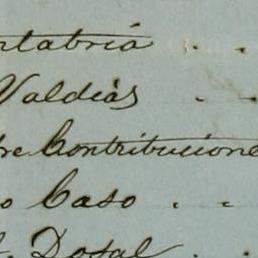 rtabria . .
Valdiás . .
re Contribucione
o Caso . .
l. Dosal . .